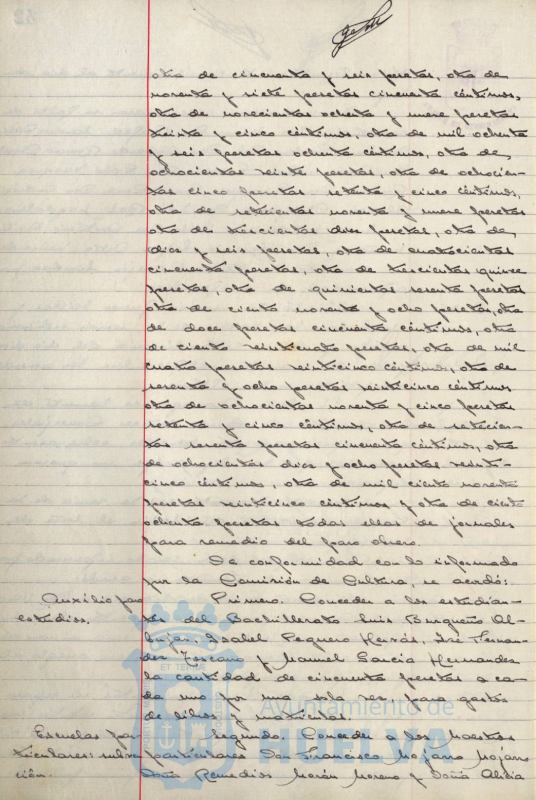 otra de cincuenta y seis pesetas, otra de
noventa y siete pesetas cincuenta céntimos,
otra de novecientas ochenta y nueve pesetas
treinta y cinco céntimos, otra de mil ochenta
y seis pesetas ochenta céntimos, otra de
ochocientas veinte pesetas, otra de ochocien-
tas cinco pesetas setenta y cinco céntimos,
otra de setecientas noventa y nueve pesetas
otra de trescientas dos pesetas, otra de
diez y seis pesetas, otra de cuatrocientas
cincuenta pesetas, otra de trescientas quince
pesetas, otra de quinientas sesenta pesetas
otra de ciento noventa y ocho pesetas, otra
de doce pesetas cincuenta céntimos, otra
de ciento veinticuatro pesetas, otra de mil
cuatro pesetas veinticinco céntimos, otra de
sesenta y ocho pesetas veinticinco céntimos
otra de ochocientas noventa y cinco pesetas
setenta y cinco céntimos, otra de setecien-
tas sesenta pesetas cincuenta céntimos, otra
de ochocientas diez y ocho pesetas veinti-
cinco céntimos, otra de mil ciento noventa
pesetas veinticinco céntimos y otra de ciento
ochenta pesetas todas ellas de jornales
para remedio del paro obrero.
De conformidad con lo informado
por la Comisión de Cultura, se acordó:
Auxilio para
estudios.
Primero. Conceder a los estudian-
tes del Bachillerato Luis Burgueño Al-
Isabel Peguero José Fernan-
dez Toscano y Manuel García Hernandez
la cantidad de cincuenta pesetas a ca-
da uno por una sola vez, para gastos
de libros y matrículas.
Escuelas par-
ticulares: subven-
ción.
Segundo. Conceder a los Maestros
particulares Don Francisco Mojarro Mojarro
Doña Remedios Morán Moreno y Doña Alicia
Ayuntamiento de
HUELVA